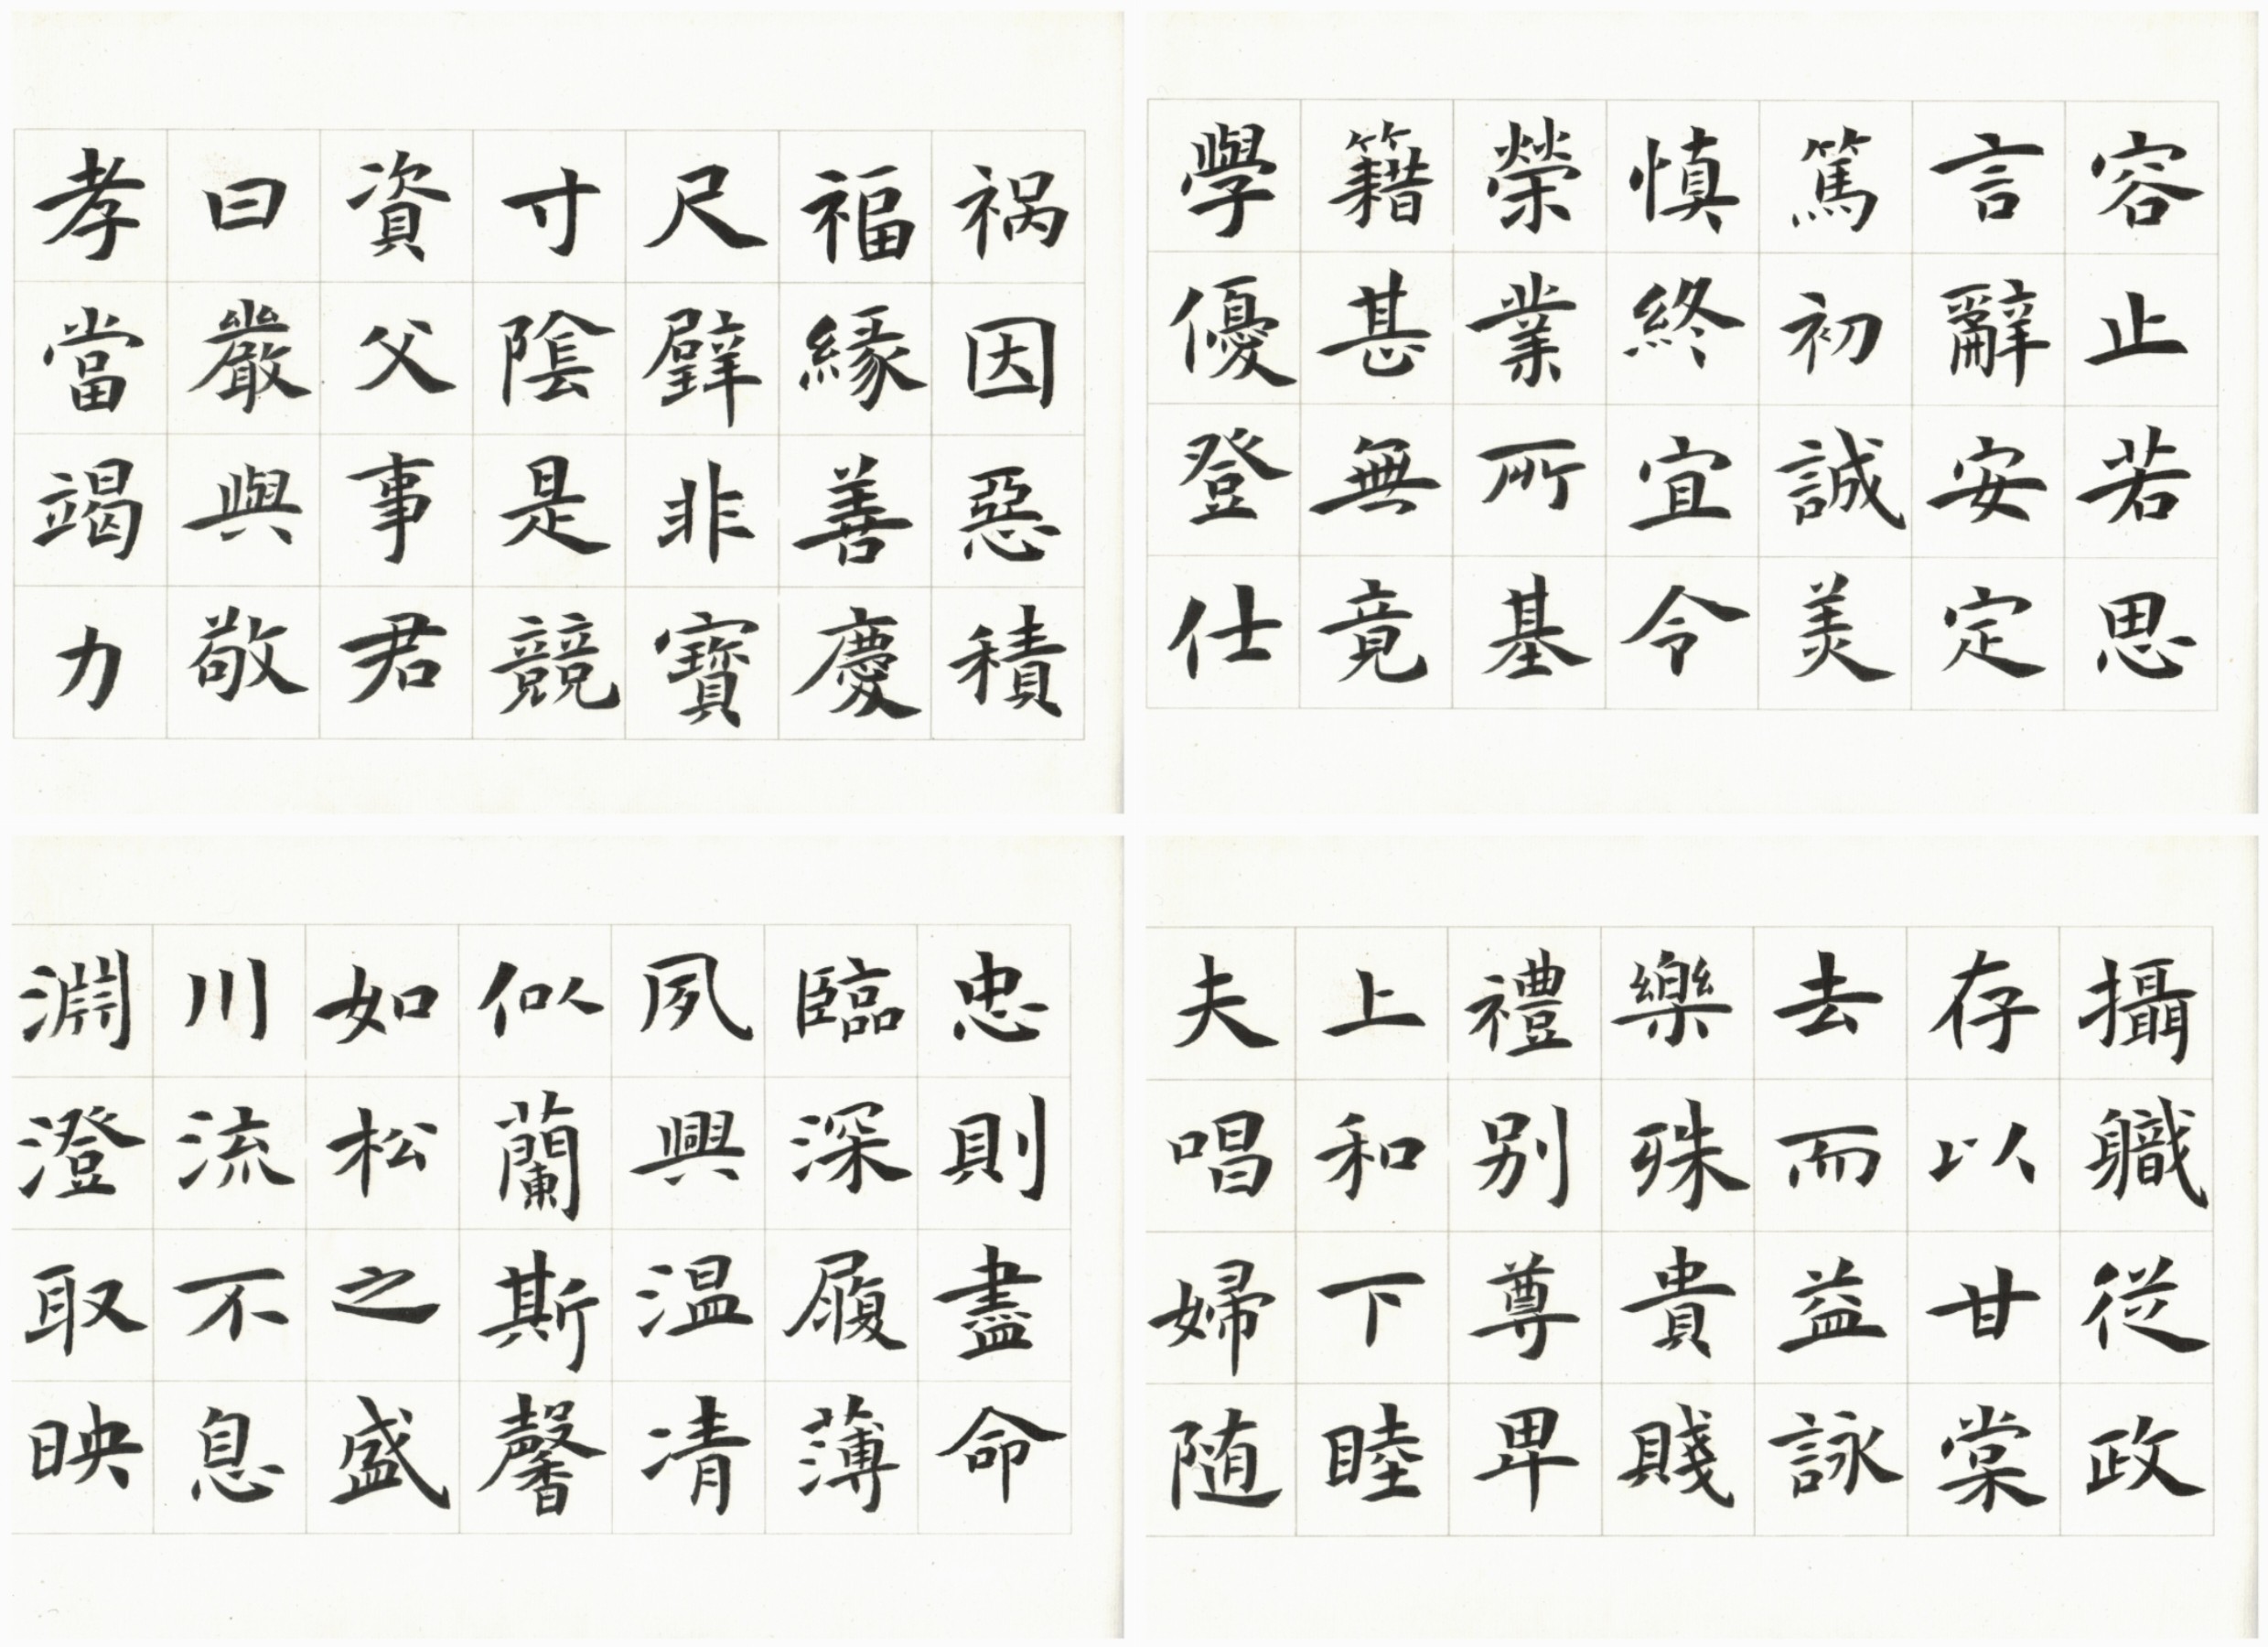 祸因惡積
福緣善慶
尺璧非寶
寸陰是競
資父事君
曰嚴與敬
孝當竭力
忠則盡命
臨深履薄
夙興温凊
似蘭斯馨
如松之盛
川流不息
淵澄取映
容止若思
言辭安定
篤初誠美
慎終宜令
榮業所基
籍甚無竟
學優登仕
攝職從政
存以甘棠
去而益詠
樂殊貴賤
禮别尊卑
上和下睦
夫唱婦随